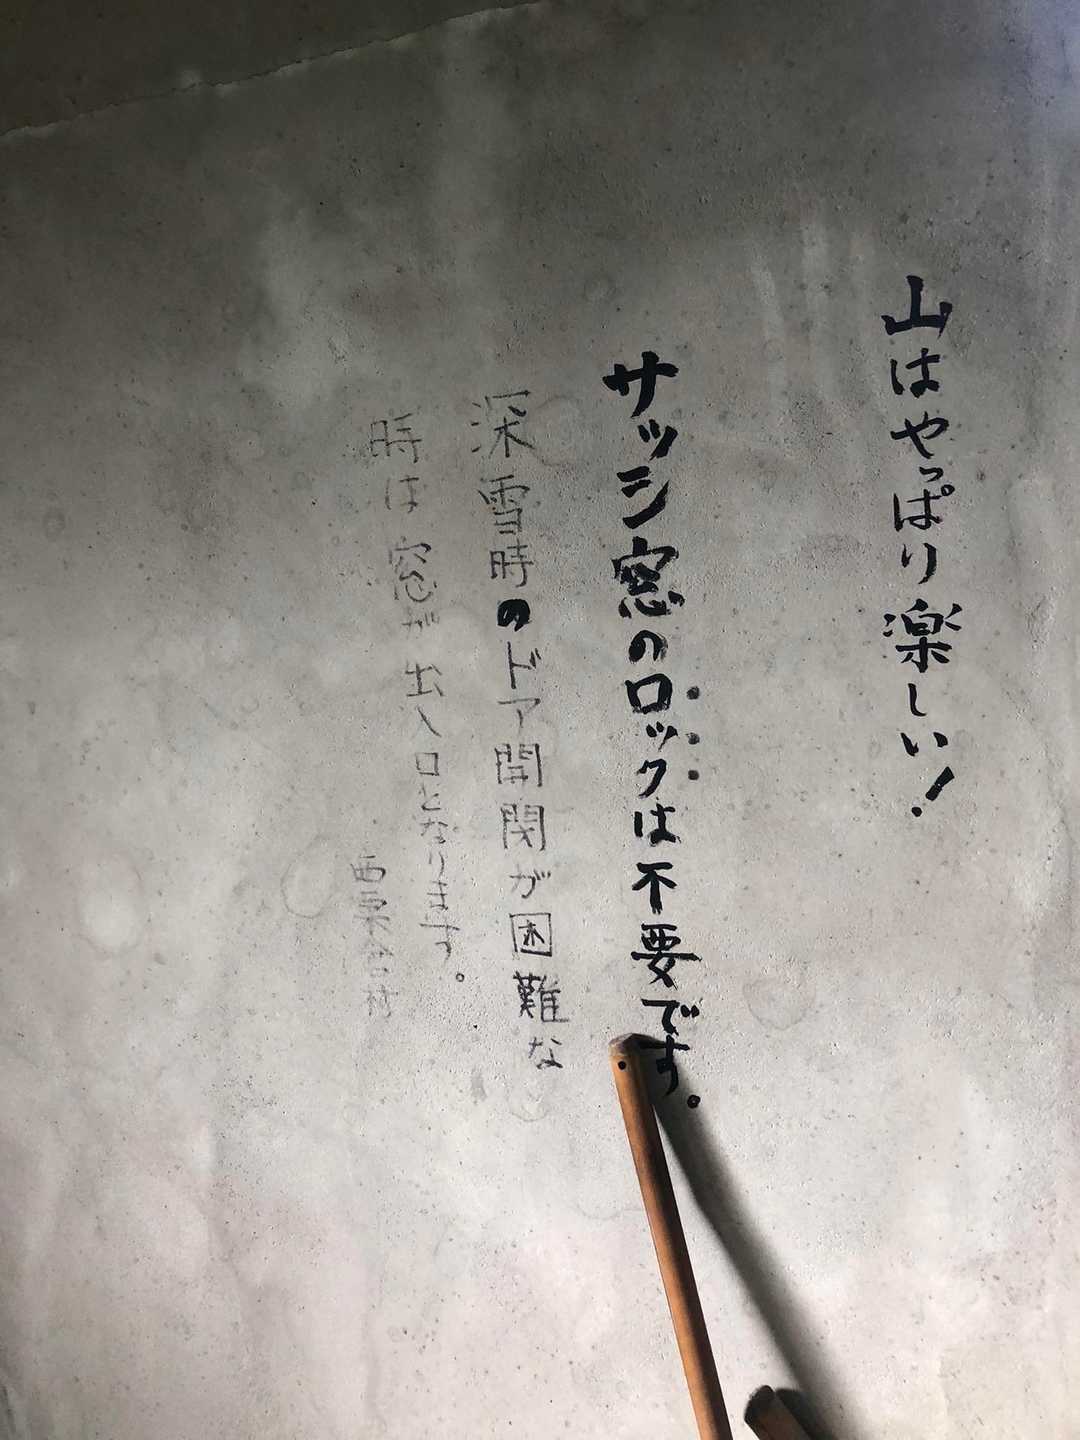 山はやっぱり楽しい!
サッシ窓のロックは不要です。
深雪時のドア開閉が困難な
時は窓が出入口となります。
西粟倉村